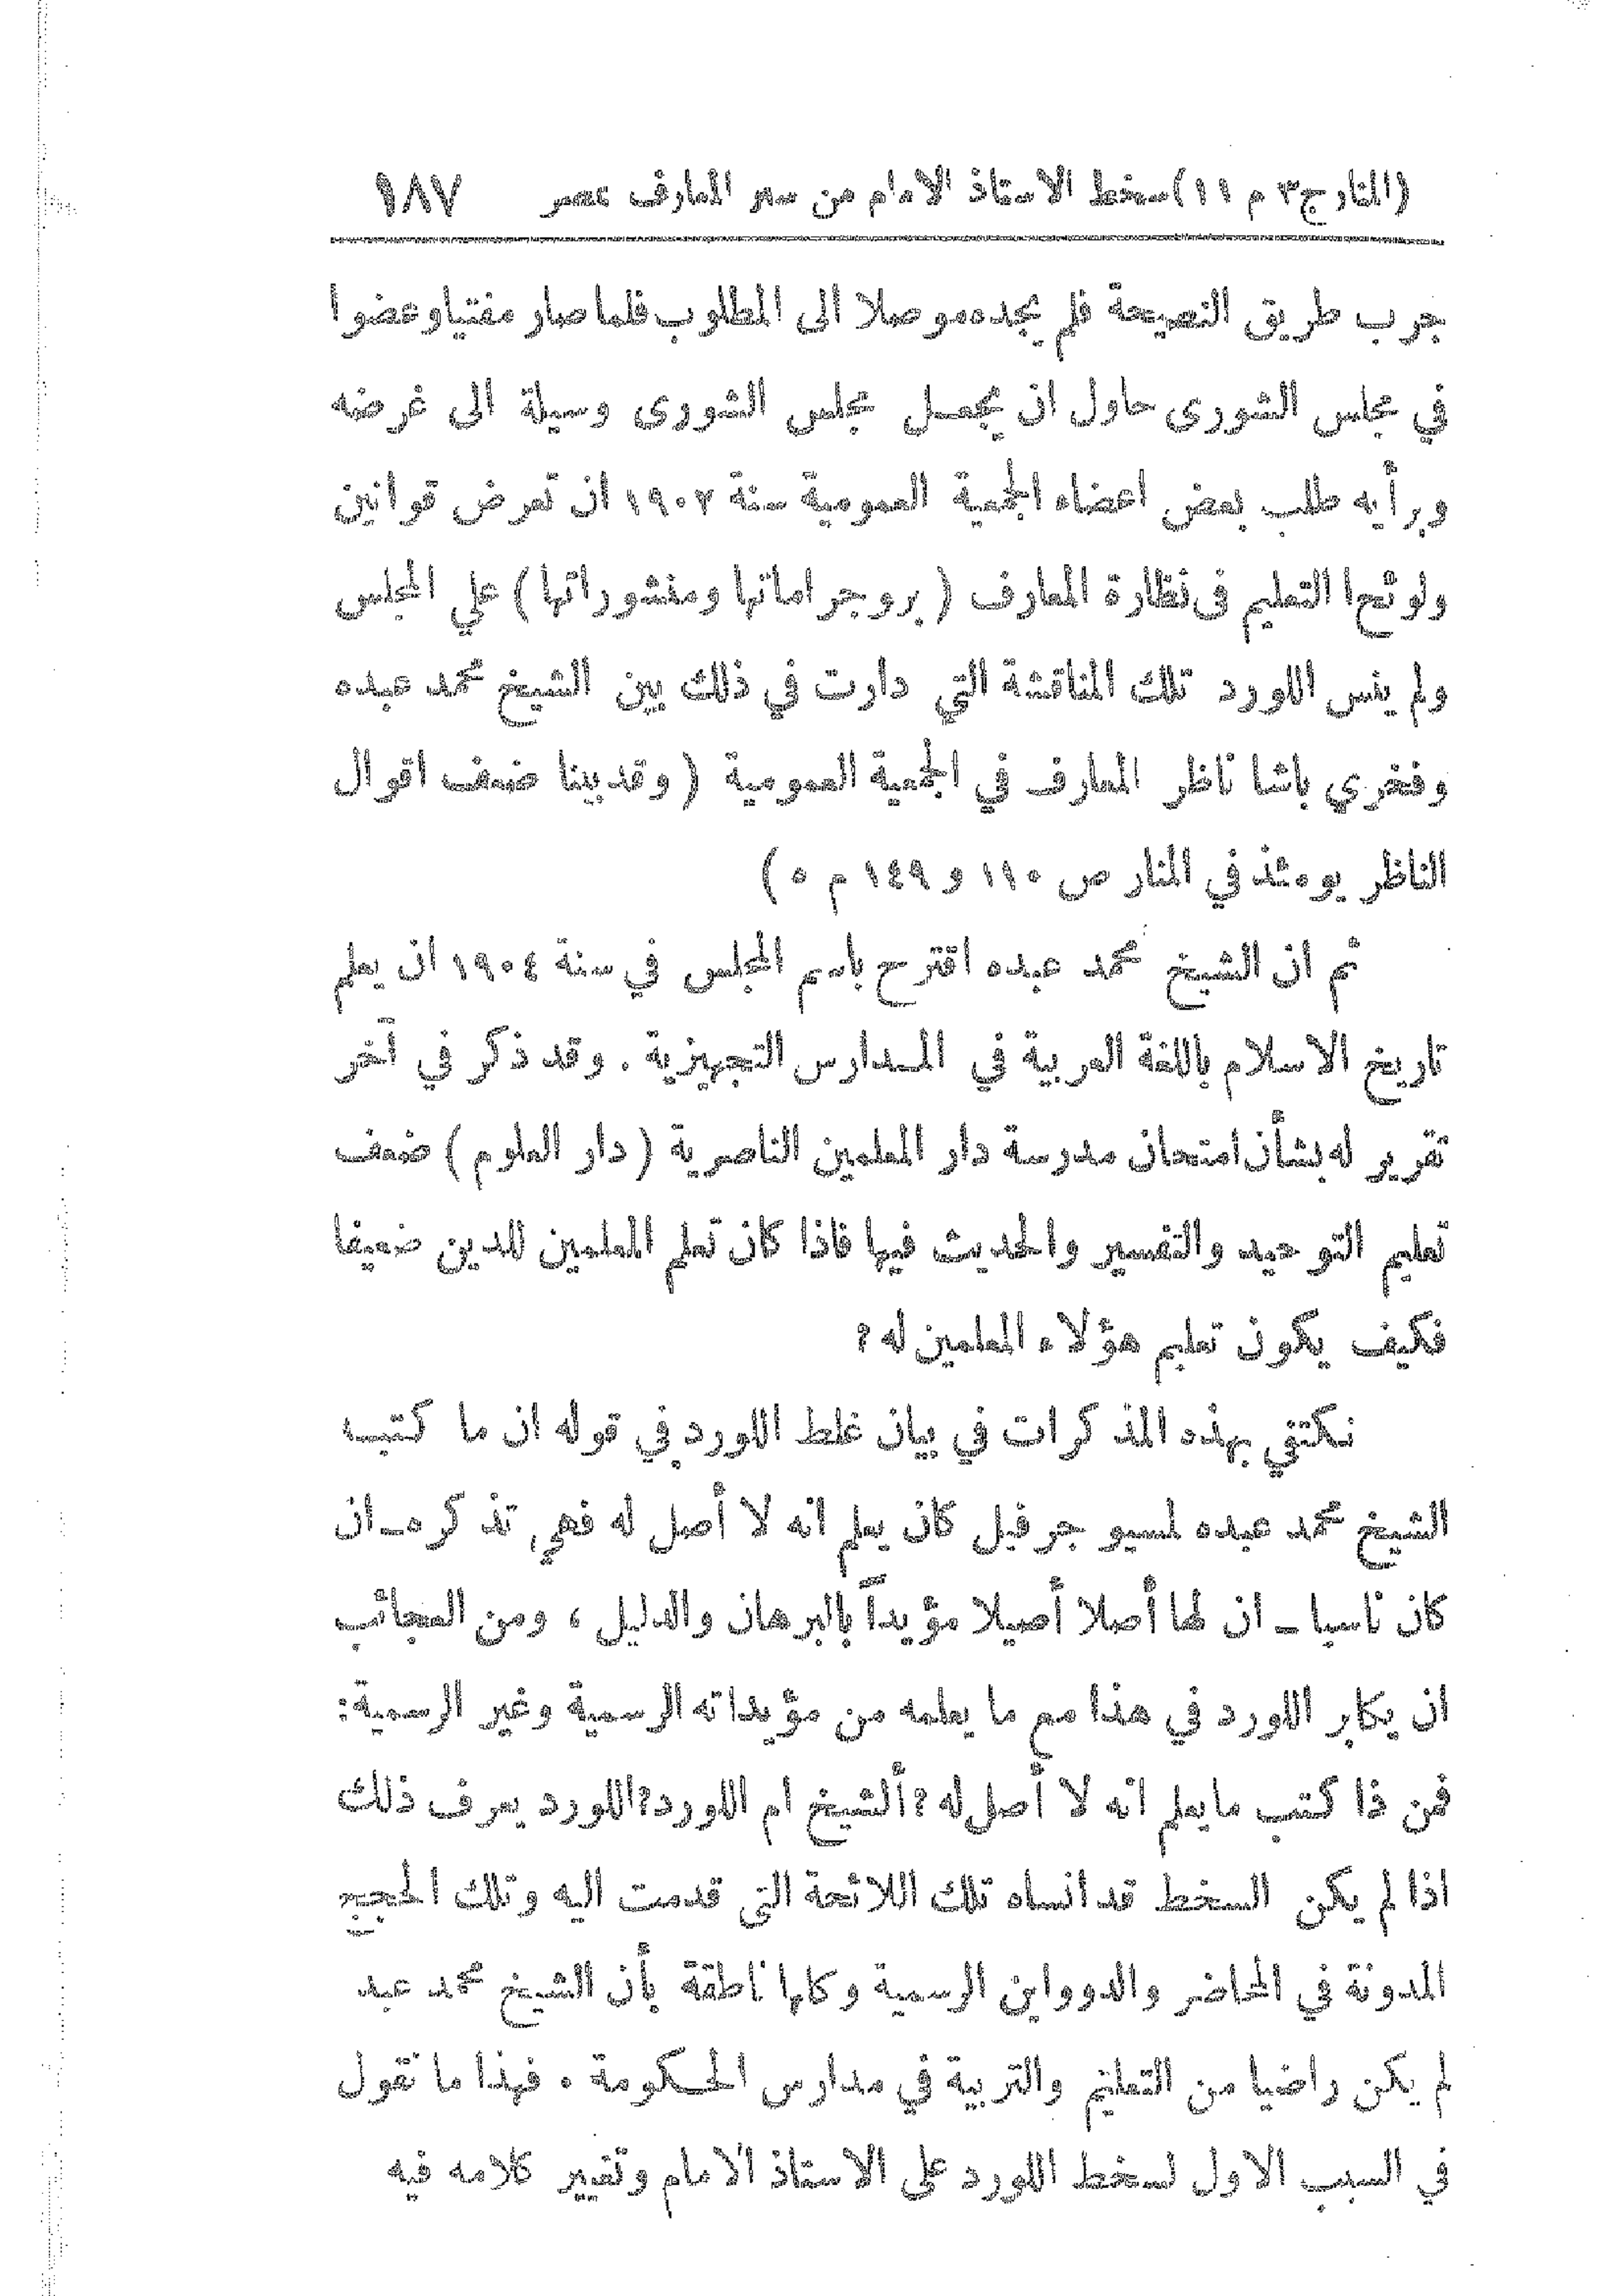 (المنارج٣ م ١١) سخط الاستاذ الامام من سير المعارف بمصر ١٨٧
جرب طريق النصيحة فلم يجده موصلا الى المطلوب فلما صار مفتيا وعضوا
في مجلس الشورى حاول ان يجعل مجلس الشورى وسيلة الى غرضه
وبرأيه طلب بعض اعضاء الجمعية العمومية سنة ١٩٠٢ ان تعرض قوانين
ولوئحا التعليم فى نظارة المعارف ( بروجراماتها ومنشوراتها ) علي المجلس
ولم ينس اللورد تلك المناقشة التي دارت في ذلك بين الشيخ محمد عبده
وفخري باشا ناظر المعارف في الجمعية العمومية ( وقد بينا ضعف اقوال
الناظر يومئذ في المنار ص ١١٠ و ١٤٩ م ٥ )
ثم ان الشيخ محمد عبده اقترح باسم المجلس في سنة ١٩٠٤ ان يعلم
تاريخ الاسلام باللغة العربية في المدارس التجهيزية . وقد ذكر في آخر
تقرير له بشأن امتحان مدرسة دار المعلمين الناصرية ( دار العلوم ) ضعف
تعليم التوحيد والتفسير والحديث فيها فاذا كان تعلم المعلمين للدين ضعيفا
فكيف يكون تعليم هؤلاء المعلمين له ؟
نكتفي بهذه المذكرات في بيان غلط اللورد في قوله ان ما كتبه
الشيخ محمد عبده لمسيو جرفيل كان يعلم انه لا أصل له فهي تذكره ـ ان
كان ناسيا ـ ان لها أصلا أصيلا مؤيداً بالبرهان والدليل ، ومن العجائب
ان يكابر اللورد في هذا مع ما يعلمه من مؤيداته الرسمية وغير الرسمية :
فمن ذا كتب ما يعلم انه لا أصل له ؟ ألشيخ ام اللورد؟ اللورد يعرف ذلك
اذا لم يكن السخط قد انساه تلك اللائحة التي قدمت اليه وتلك الحجج
المدونة في المحاضر والدوواين الرسمية وكلها ناطقة بأن الشيخ محمد عبد
لم يكن راضيا من التعليم والتربية في مدارس الحكومة . فهذا ما نقول
في السبب الاول لسخط اللورد على الاستاذ الامام وتغيير كلامه فيه